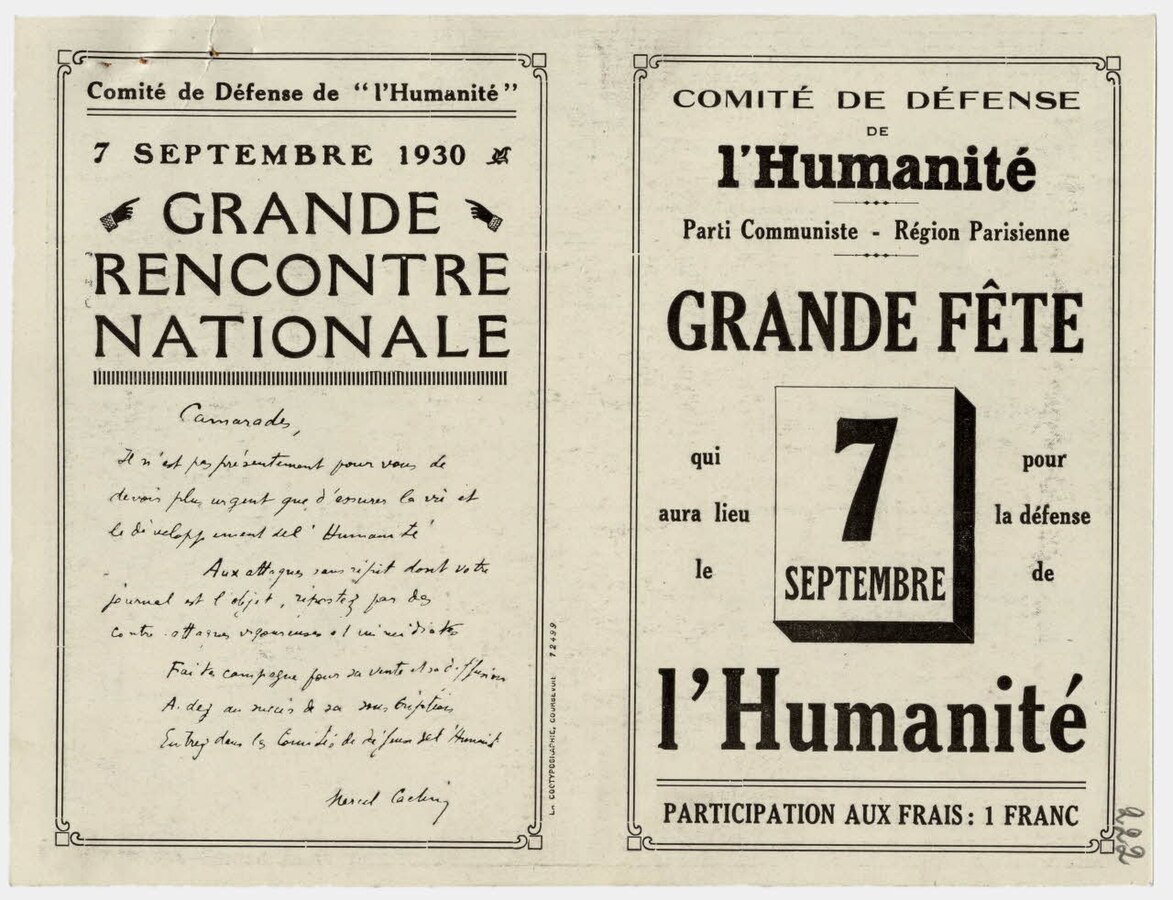 Comité de Défense de “l'Humanité”
7 SEPTEMBRE 1930
GRANDE
RENCONTRE
NATIONALE
Camarades,
Il n'est pas présentement pour vous de
devoir plus urgent que d'assurer la vie et
le développement de l'Humanité
Aux attaques sans répit dont votre
journal est l'objet, ripostez par des
contre-attaques vigoureuses et immédiates
Faites campagne pour sa vente et sa diffusion
Aidez au succès de sa souscription
Entrez dans les Comités de défense de l'Humanité
Marcel Cachin
LA COOTYPOGRAPHIE, COURBEVOIE 72499
COMITÉ DE DÉFENSE
DE
l'Humanité
Parti Communiste - Région Parisienne
GRANDE FÊTE
qui
aura lieu
le
7
SEPTEMBRE
pour
la défense
de
l'Humanité
PARTICIPATION AUX FRAIS : 1 FRANC
222